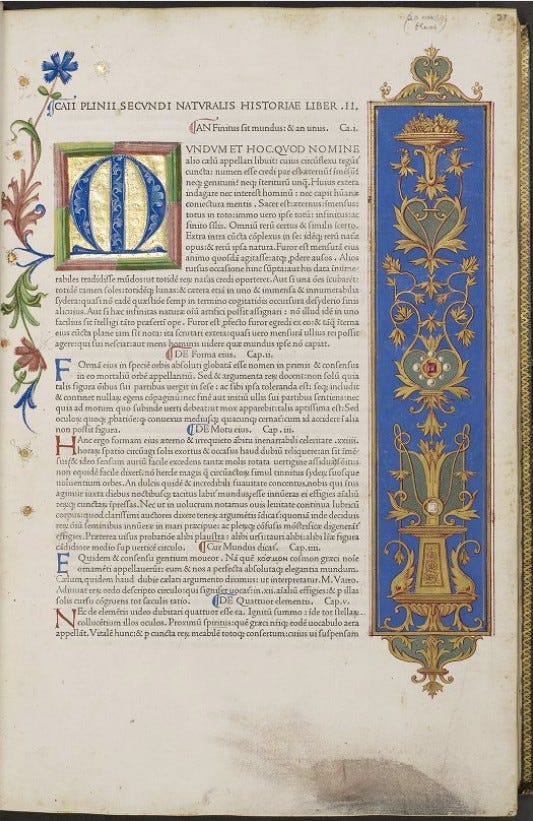 CAII PLINII SECVNDI NATVRALIS HISTORIAE LIBER .II.
AN Finitus sit mundus: & an unus. Ca.i.
MVNDVM ET HOC QVOD NOMINE
alio cælū appellari libuit: cuius circūflexu
cuncta: numen esse credi par est æternū
neq; genitum: neq; Huius extera
indagare nec interest hominū : nec capit humanæ
coniectura mentis . Sacer est: æternus: īmensus:
totus in toto: immo uero ipse totū: infinitus: ac
finito silis. Omniū rerū certus & similis īcerto.
Extra intra cūcta cōplexus in se: idēq; rerū naturæ
opus: & rerū ipsa natura. Furor est mensurā eius
animo quosdā agitasse: atq; pdere ausos . Alios
rursus occasione hinc aut his data
rabiles tradidisse mūdos: ut totidē rerū naturas credi oporteret. Aut si una oēs
totidē tamen soles: totidēq; lunas: & cætera etiā in uno & immensa & innumerabilia
sydera: quasi nō eadē quæstiōe semp in termino cogitatiōis occursura desyderio finis
alicuius. Aut si hæc infinitas naturæ oium artifici possit assignari : nō illud idē in uno
facilius sit tāto præsertī ope . Furor est
eius cūcta plane iam sit nota: ita scrutari extera: quasi uero mensurā ullius rei possit
agere: qui sui nesciat: aut mens hominis uidere quæ mundus ipse nō capiat.
DE Forma eius. Cap.ii.
Forma eius in speciē orbis absoluti globatā esse nomen in primis & consensus
in eo mortaliū orbē appellantiū . Sed & argumenta rerū docent: non solū quia
talis figura oibus sui partibus uergit in sese : ac sibi ipsa toleranda est: seq; includit
& continet nullarū egens nec finē aut initiū ullis sui partibus sentiens: nec
quia ad motum quo subinde uerti debeat: ut mox apparebit: talis aptissima est: Sed
oculorū quoq; pbatiōe: q conuexus mediusq; quacunq; cernatur: cum id accidere alia
non possit figura. DE Motu eius. Cap.iii.
Hanc ergo formam eius æterno & irrequieto ābitu inenarrabili celeritate .xxiiii.
horarū spatio circūagi solis exortus & occasus haud dubiū reliquere: an sit
sus: & ideo sensum auriū facile excedens tantæ molis rotatæ uertigine assidua sōitus
non equidē facile dixerī: nō hercle magis q circūactorū simul tinnitus syderū: suosq;
uoluentium orbes. An dulcis quidā & incredibili suauitate concentus: nobis qui intus
agimur iuxta diebus noctibusq; tacitus labit mundus: esse innueras ei effigies aīaliū
rerūq; cunctarū īpressas. Nec ut in uolucrum notamus ouis leuitate continua lubricū
corpus: quod clarissimi auctores dixere tenerū: argumentis īdicat: quoniā inde deciduis
rerū oiū seminibus innūeræ in mari præcipue: ac plerūq; cōfusis mōstrificæ
effigies. Præterea uisus probatiōe alibi plaustri : alibi ursi: tauri alibi: alibi līæ figura
cādidiore medio sup uerticē circulo. Cur Mundus dicat. Cap.iiii.
Equidem & consensu gentium moueor . Nā quē κόσμον græci noīe
ornamēti appellauere: eum & nos a perfecta absolutaq; elegantia mundum.
Cælum, quidem haud dubie cælati argumento diximus: ut interpretatur. M. Varro.
Adiuuat rerū ordo descripto circulo: qui signifer uocat: in .xii. aīaliū effigies: & p illas
solis cursu cōgruens tot sæculis ratio. DE Quattuor elementis. Cap.v.
Nec de elemētis uideo dubitari quattuor esse ea . Igniū summo : ide tot stellarū
collucētium illos oculos. Proximū spiritus: quē græci nīriq; eodē uocabulo aera
appellāt. Vitalē hunc: & p cuncta rerū meabilē totoq; consertum: cuius ui suspensam